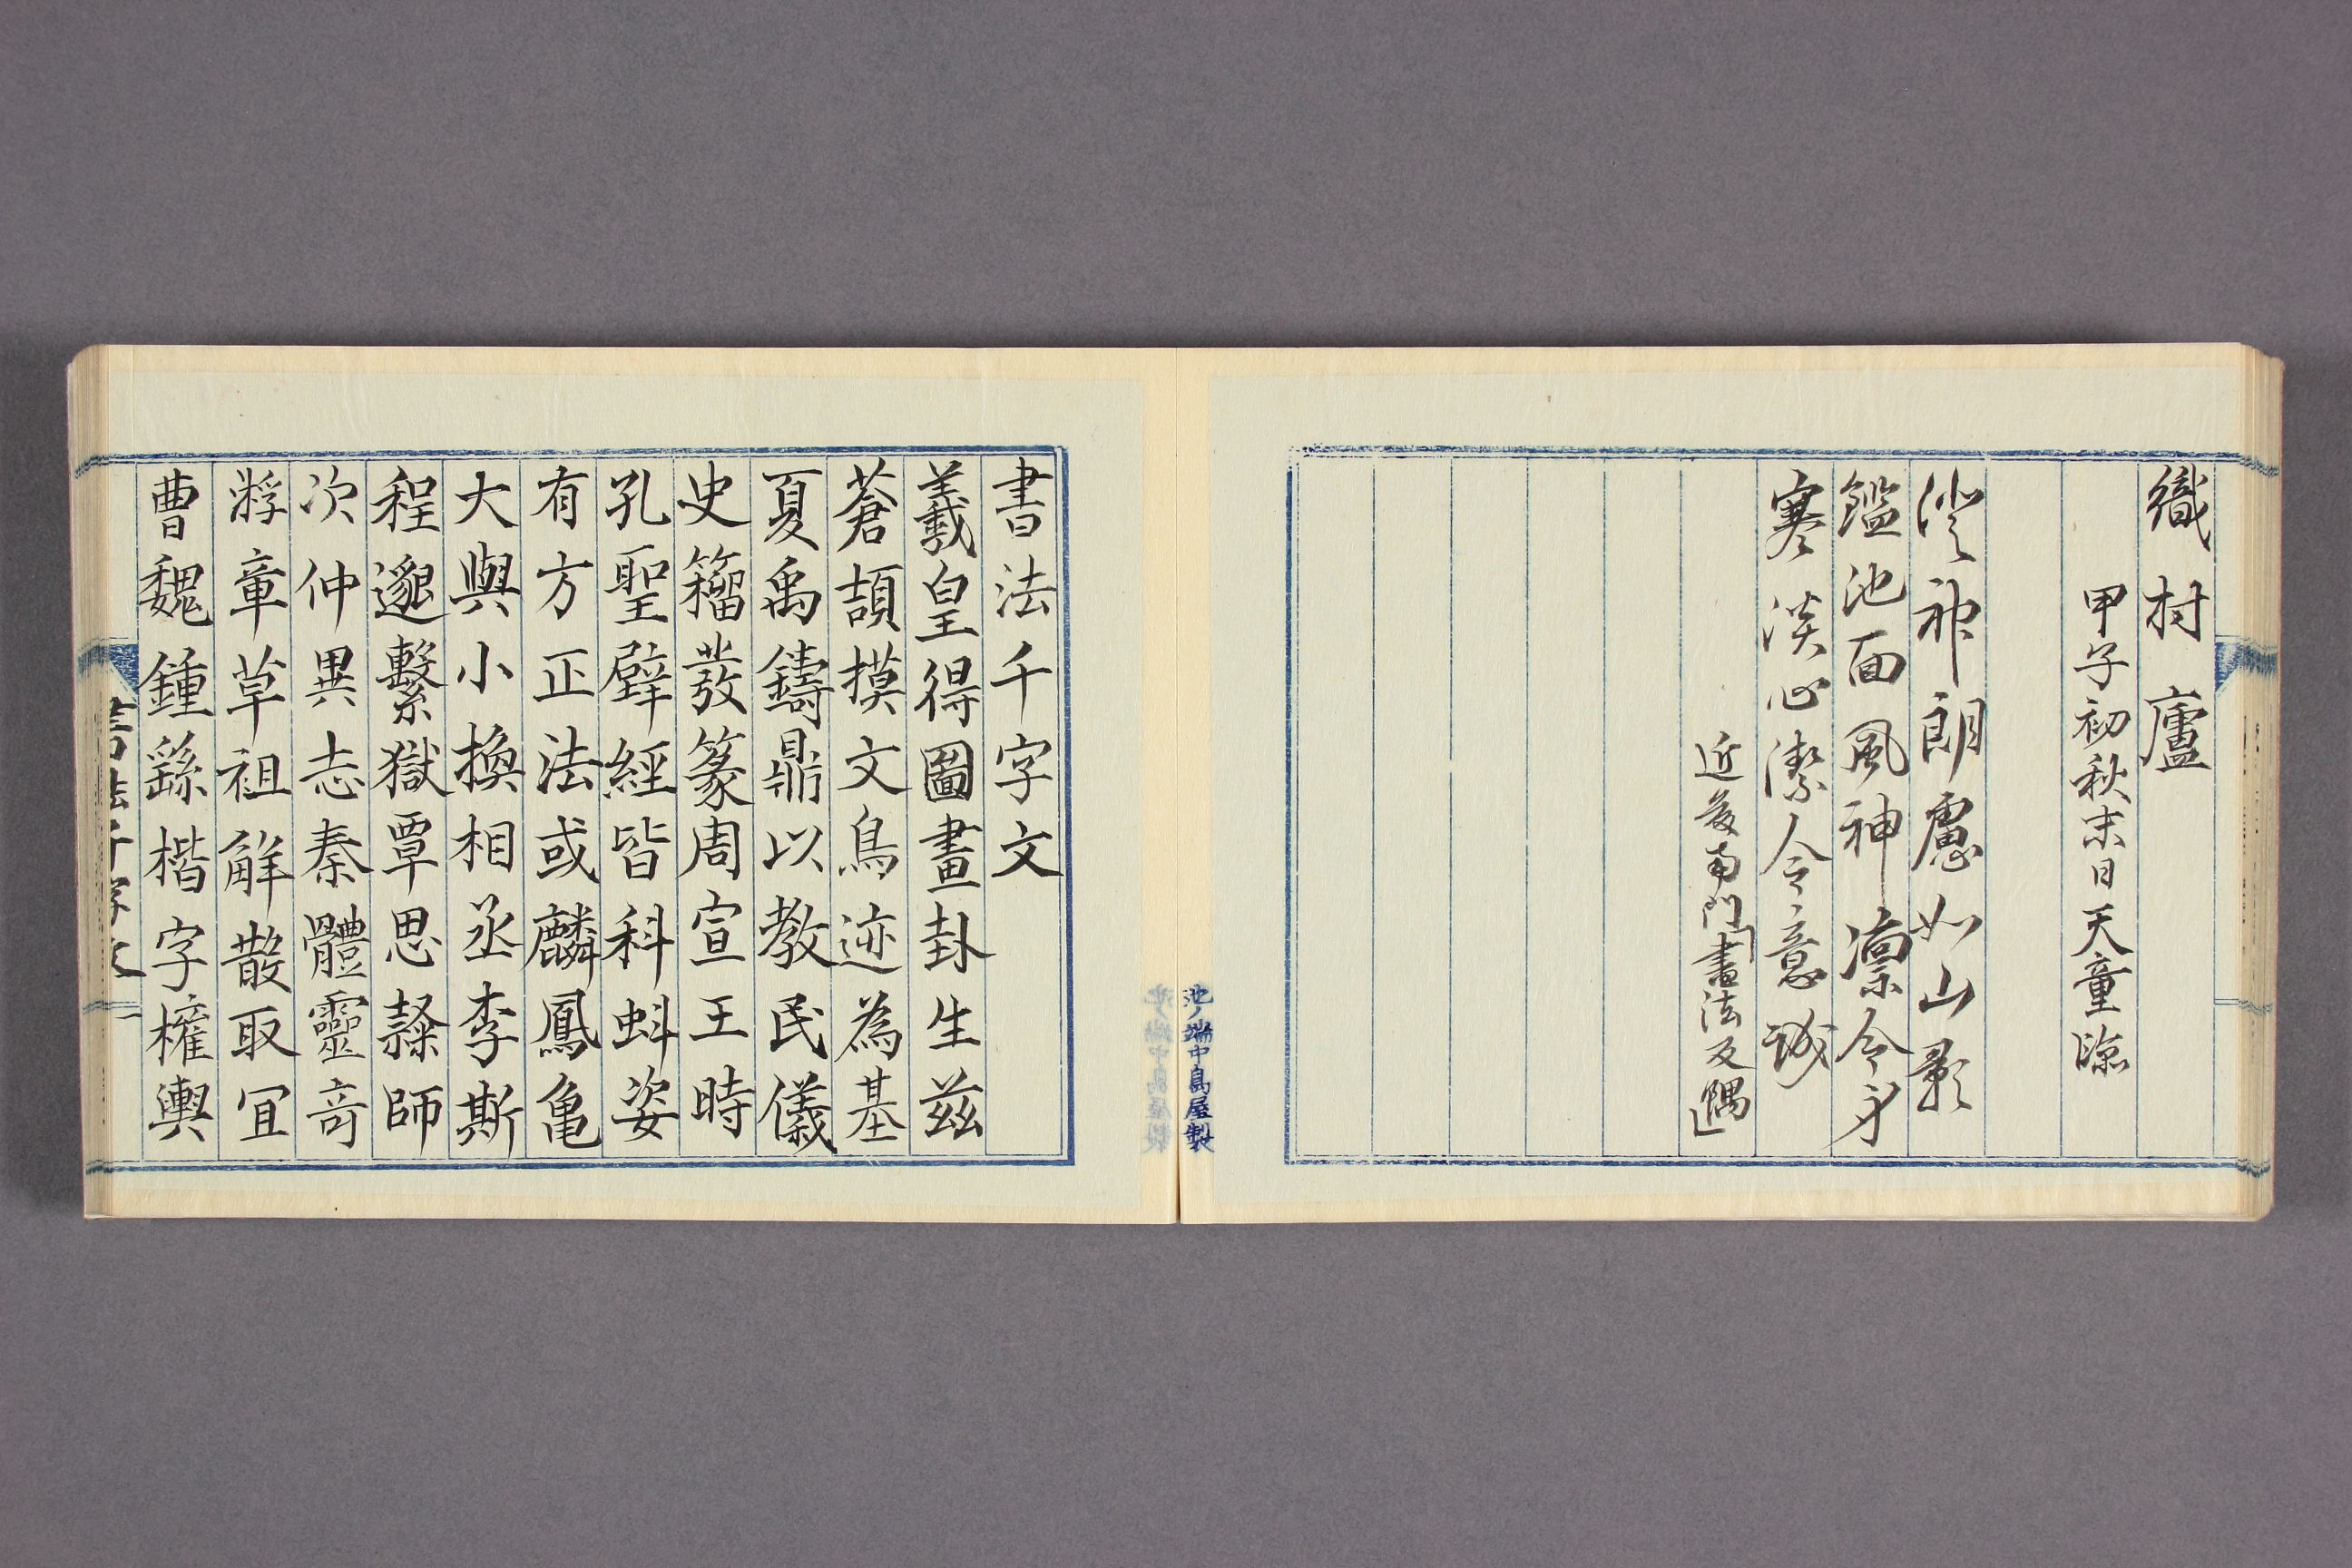 織村廬
甲子初秋末日天童臨
澄神朗慮如山影
鑑池面風神凛令身
寒淡心潔令意誠
近
書法及隅
池ノ端中島屋製
書法千字文
羲皇得圖畫卦生茲
蒼頡摸文鳥迹為基
夏禹鑄鼎以教民儀
史籀發篆周宣王時
孔聖壁經皆科蚪姿
有方正法或麟鳳亀
大與小換相丞李斯
程邈繫獄覃思隷師
次仲異志秦體靈奇
將章草祖觧散取冝
曹魏鍾繇楷字權輿
書法千字文